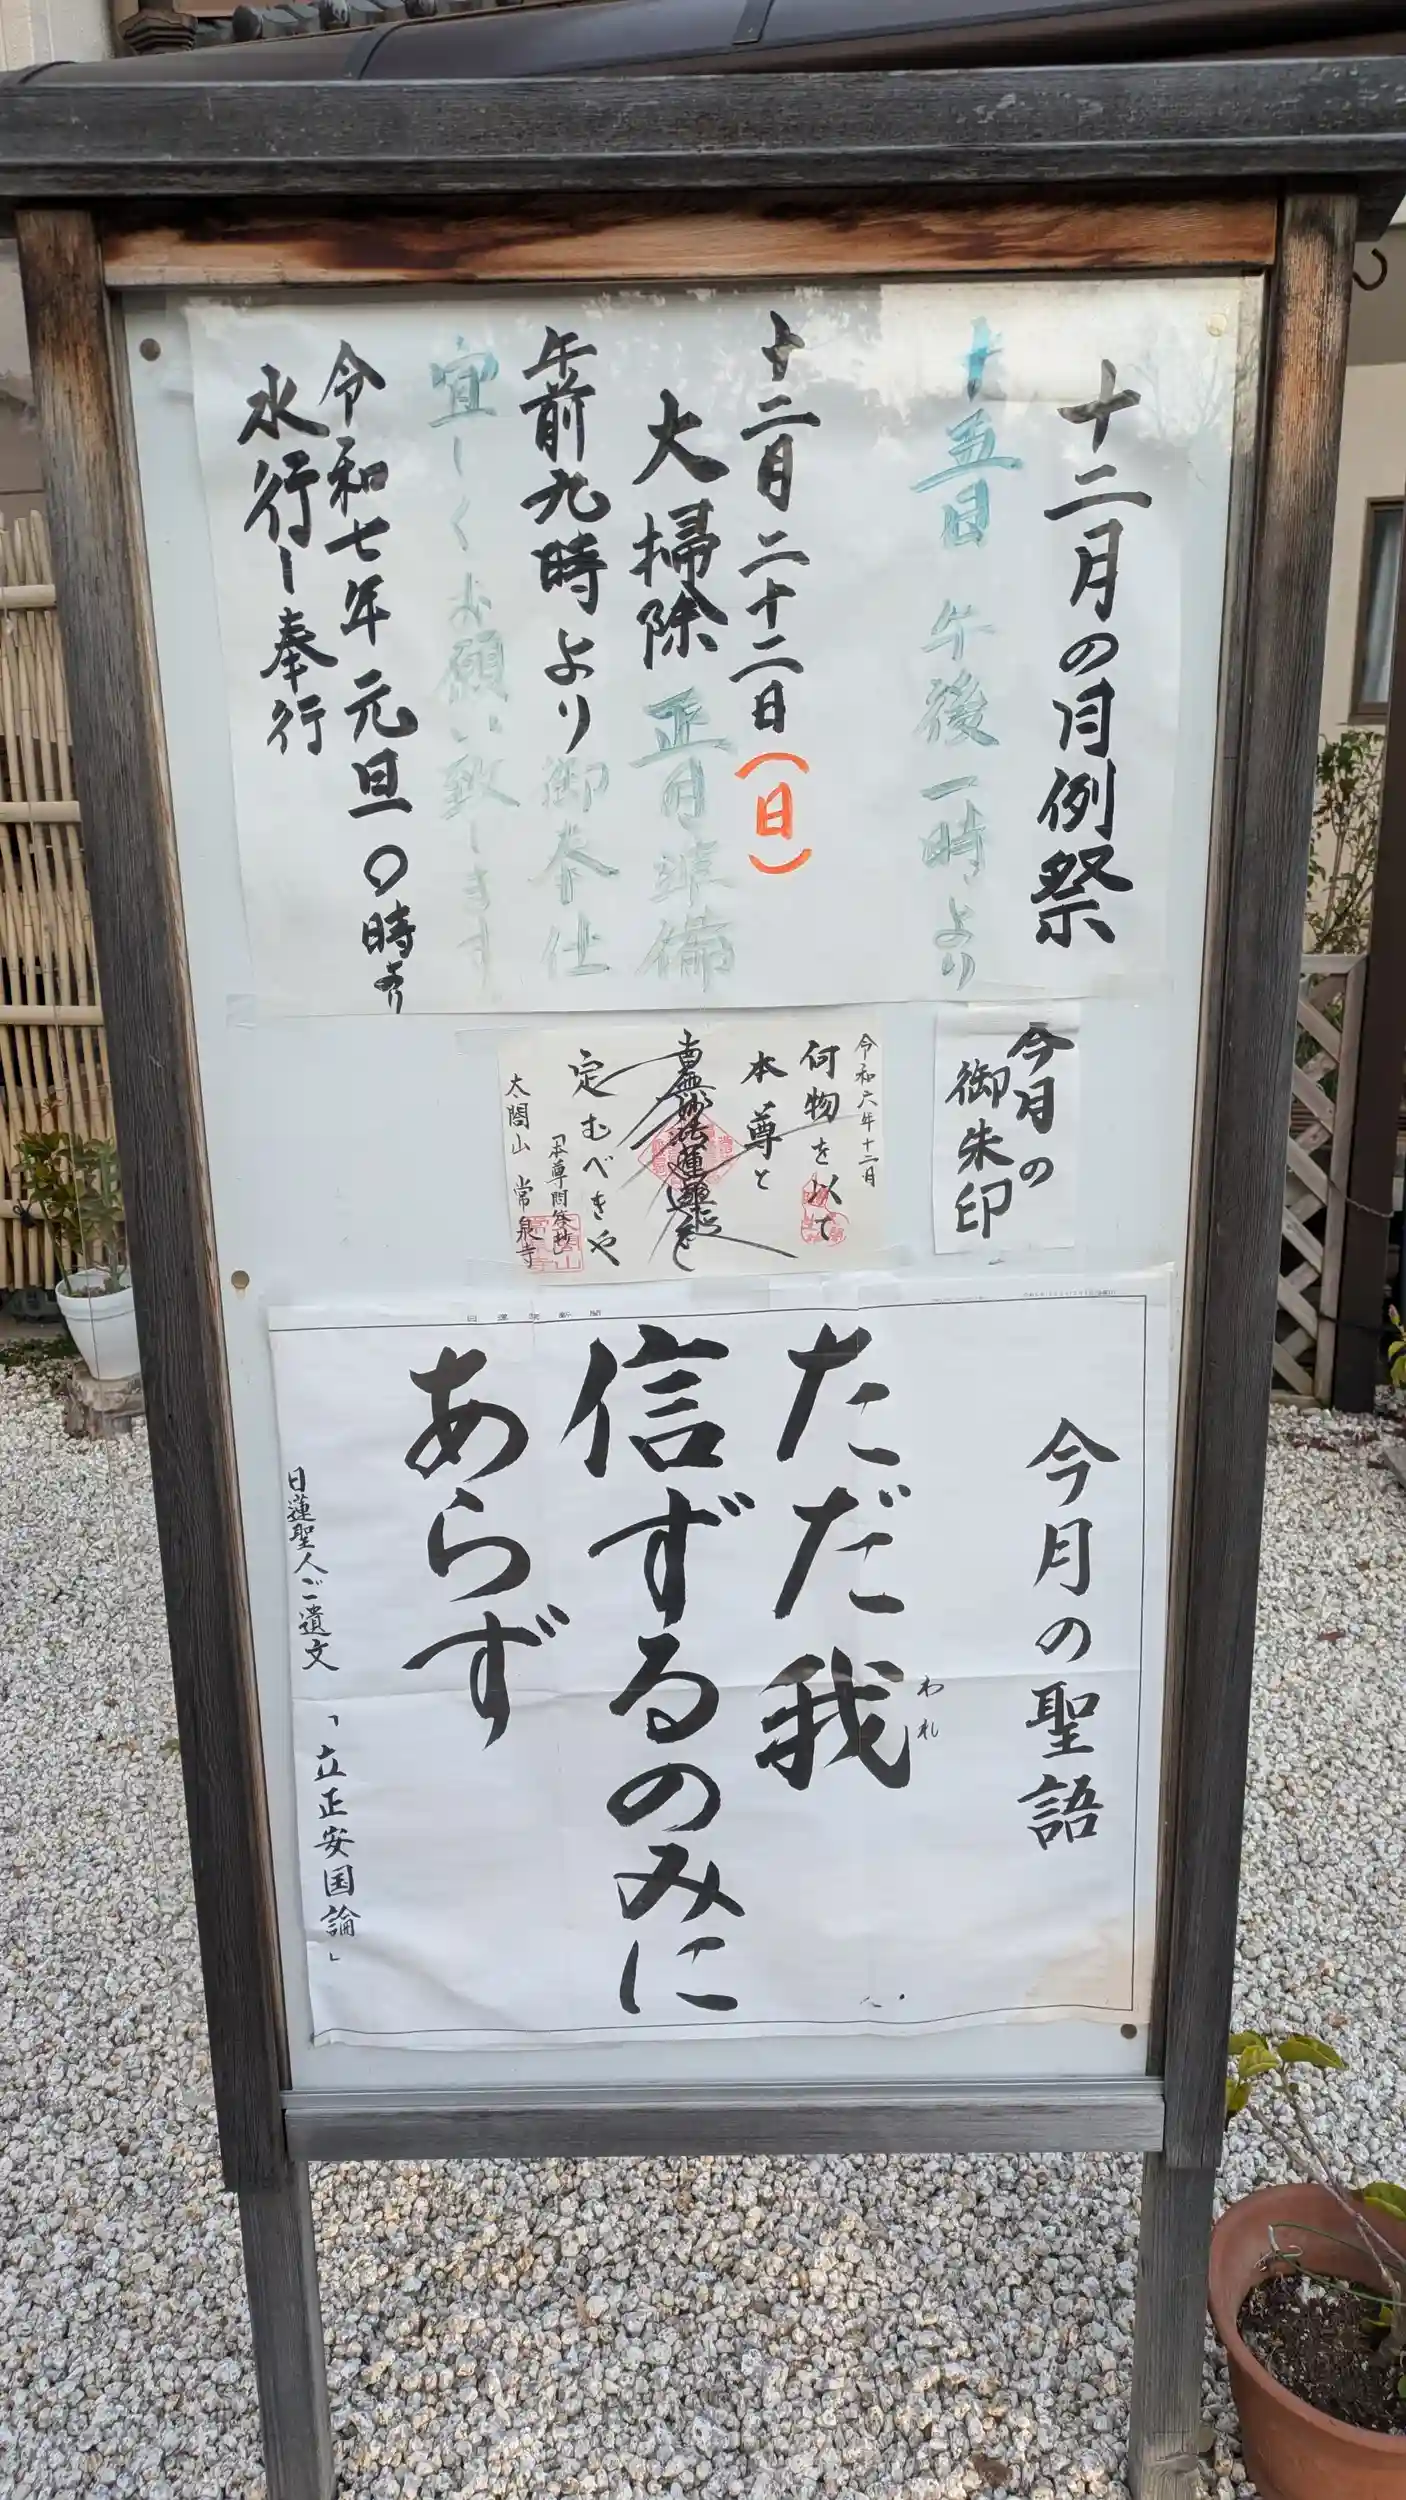 十二月の月例祭
十五日 午後一時より
十二月二十二日(日)
大掃除 正月準備
午前九時より御奉仕
宜しくお願い致します
令和七年元旦〇時より
水行し奉行
今月の
御朱印
令和六年十二月
何物を以て
本尊と
南無妙法蓮華経
定むべきや
「本尊問答抄」
太閤山 常泉寺
日蓮宗新聞
今月の聖語
ただ我
われ
信ずるのみに
あらず
日蓮聖人ご遺文 「立正安国論」